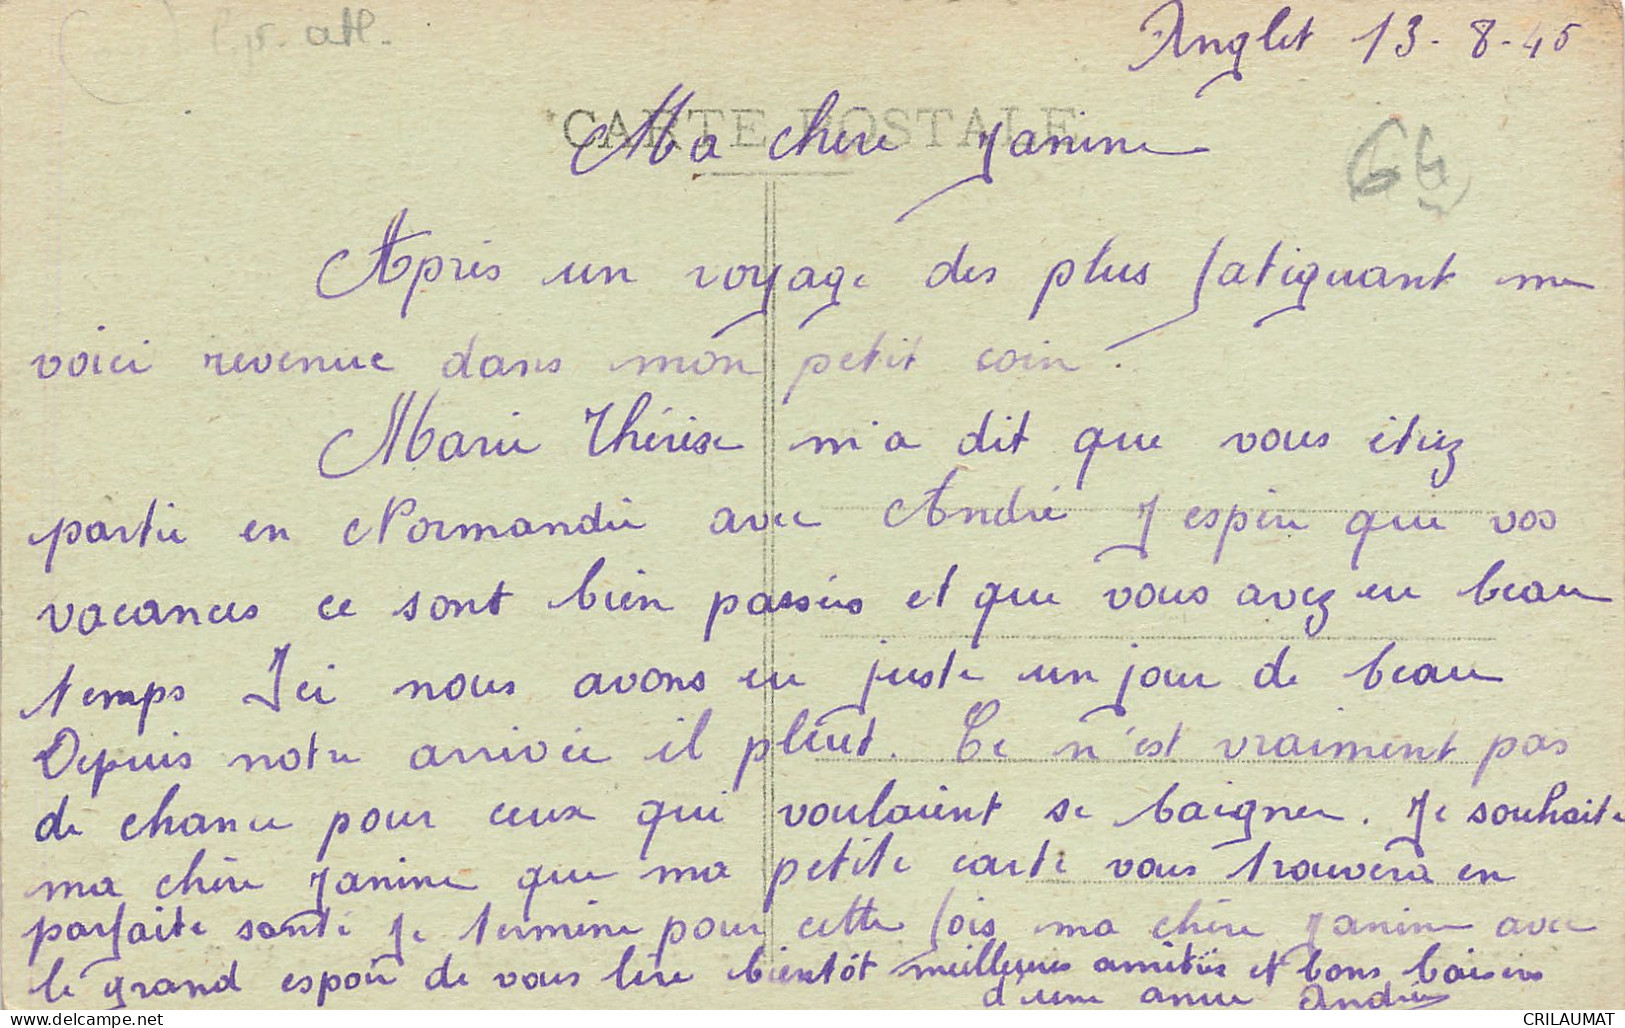 Anglet 13-8-45
CARTE POSTALE
Ma chère Janine
64
Après un voyage des plus fatiguant me
voici revenue dans mon petit coin.
Marie Thérèse m'a dit que vous étiez
partie en Normandie avec André J'espère que vos
vacances ce sont bien passées et que vous avez eu beau
temps Ici nous avons eu juste un jour de beau
Depuis notre arrivée il pleut. Ce n'est vraiment pas
de chance pour ceux qui voulaient se baigner. Je souhaite
ma chère Janine que ma petite carte vous trouvera en
parfaite santé Je termine pour cette fois ma chère Janine avec
le grand espoir de vous lire bientôt meilleures amitiés et bons baisers
d'une amie Andrée
CRILAUMAT